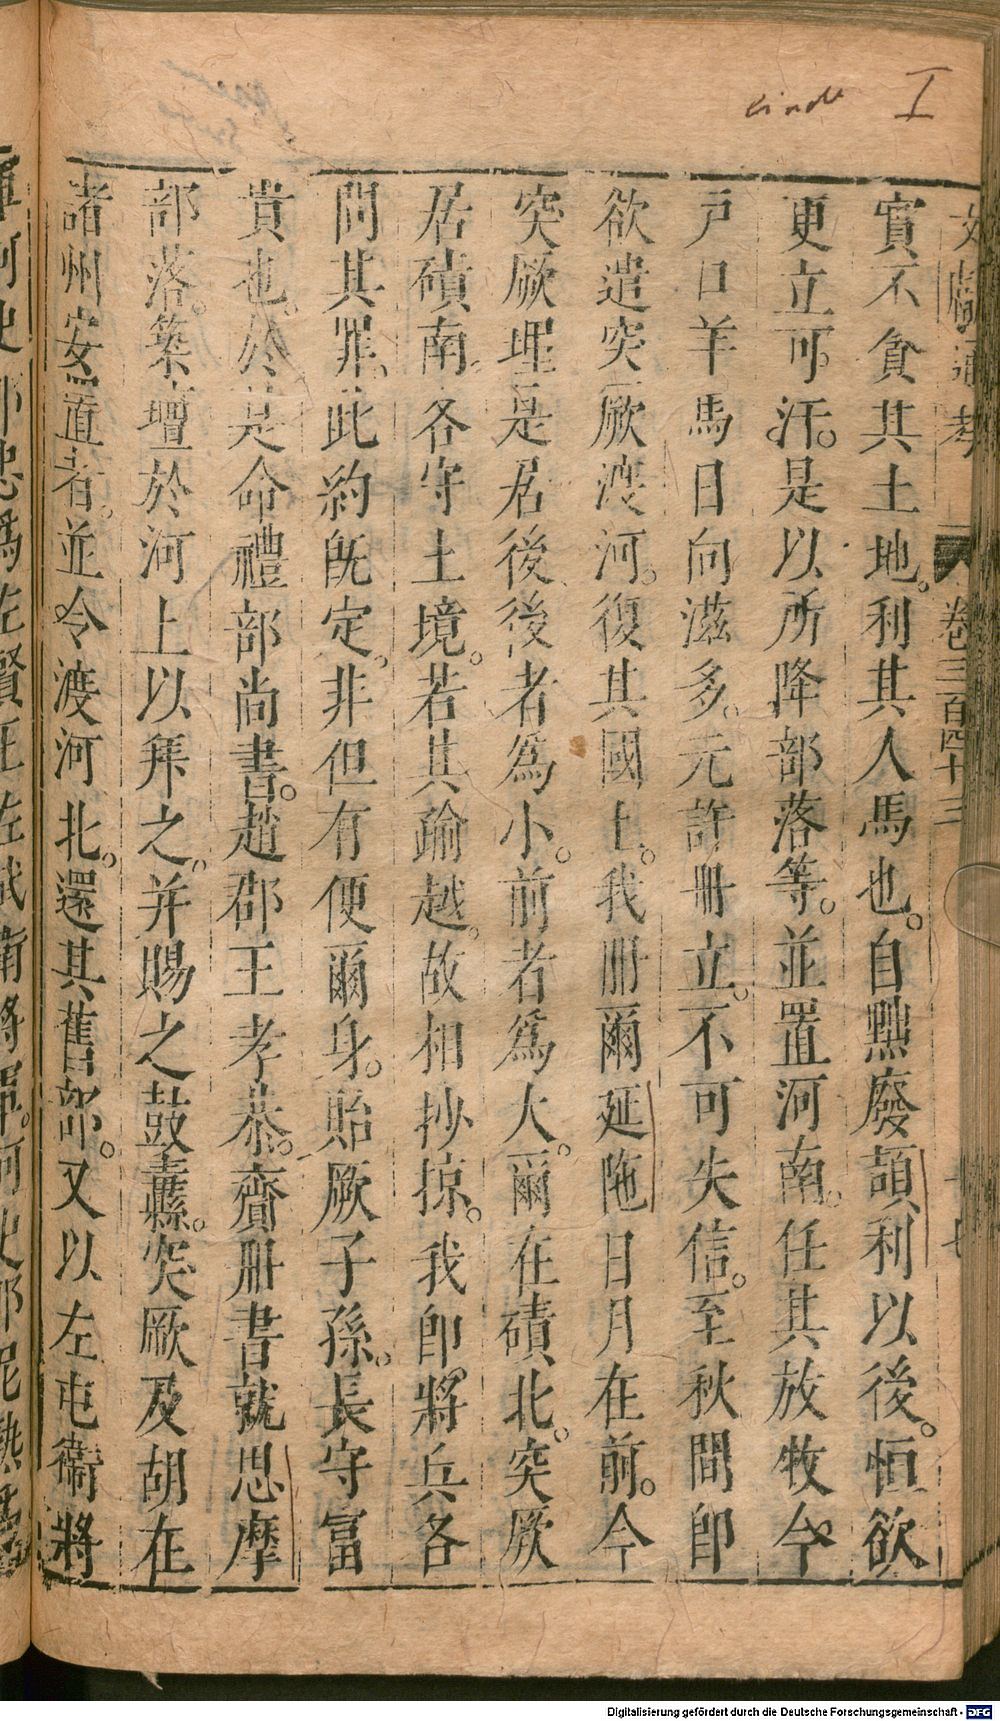 lindt I
文獻通考 卷三百四十三
實不貪其土地。利其人馬也。自黜廢頡利以後。恒欲
更立可汗。是以所降部落等。並置河南。任其放牧今
戸口羊馬日向滋多。元許册立。不可失信。至秋間卽
欲遣突厥渡河。復其國土。我册爾延陁日月在前。今
突厥理是居後後者為小。前者為大。爾在磧北。突厥
居磧南。各守土境。若其踰越。故相抄掠。我卽將兵各
問其罪。此約旣定。非但有便爾身。貽厥子孫。長守富
貴也。於是命禮部尚書。趙郡王孝恭。齎册書就思摩
部落。築壇於河上以拜之。并賜之鼓纛。突厥及胡在
諸州安置者。並令渡河北。還其舊部。又以左屯衞將
Digitalisierung gefördert durch die Deutsche Forschungsgemeinschaft - DFG